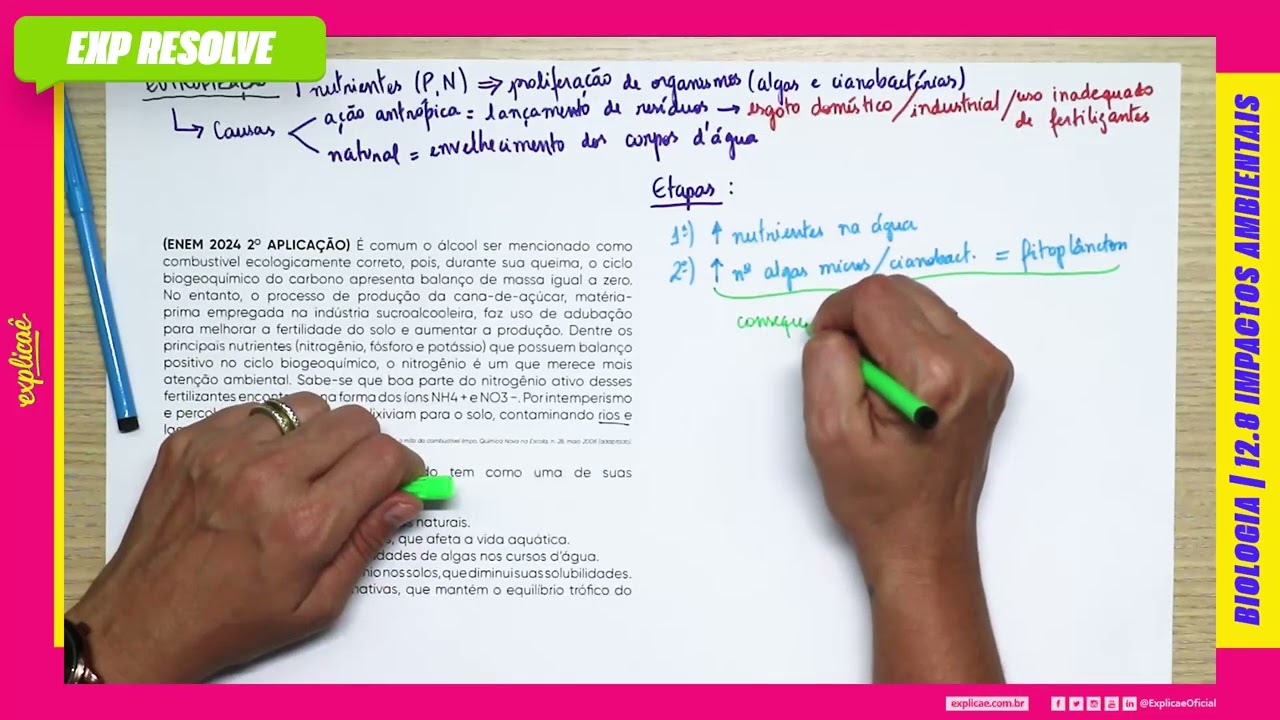 EXP RESOLVE
nutrientes (P, N) ⇒ proliferação de organismos (algas e cianobactérias)
Causas
ação antrópica = lançamento de resíduos → esgoto doméstico / industrial / uso inadequado
de fertilizantes
natural = envelhecimento dos corpos d'água
(ENEM 2024 2º APLICAÇÃO) É comum o álcool ser mencionado como
combustível ecologicamente correto, pois, durante sua queima, o ciclo
biogeoquímico do carbono apresenta balanço de massa igual a zero.
No entanto, o processo de produção da cana-de-açúcar, matéria-
prima empregada na indústria sucroalcooleira, faz uso de adubação
para melhorar a fertilidade do solo e aumentar a produção. Dentre os
principais nutrientes (nitrogênio, fósforo e potássio) que possuem balanço
positivo no ciclo biogeoquímico, o nitrogênio é um que merece mais
atenção ambiental. Sabe-se que boa parte do nitrogênio ativo desses
fertilizantes na forma dos íons NH4+ e NO3-. Por intemperismo
e lixiviam para o solo, contaminando rios e
mito do combustível limpo. Química Nova na Escola, n. 28, maio 2008 (adaptado).
tem como uma de suas
naturais.
que afeta a vida aquática.
de algas nos cursos d'água.
nos solos, que diminui suas solubilidades.
que mantém o equilíbrio trófico do
Etapas:
1º) ↑ nutrientes na água
2º) ↑ nº algas micros/cianobact. = fitoplâncton
explicaê
BIOLOGIA | 12.8 IMPACTOS AMBIENTAIS
explicae.com.br @ExplicaeOficial